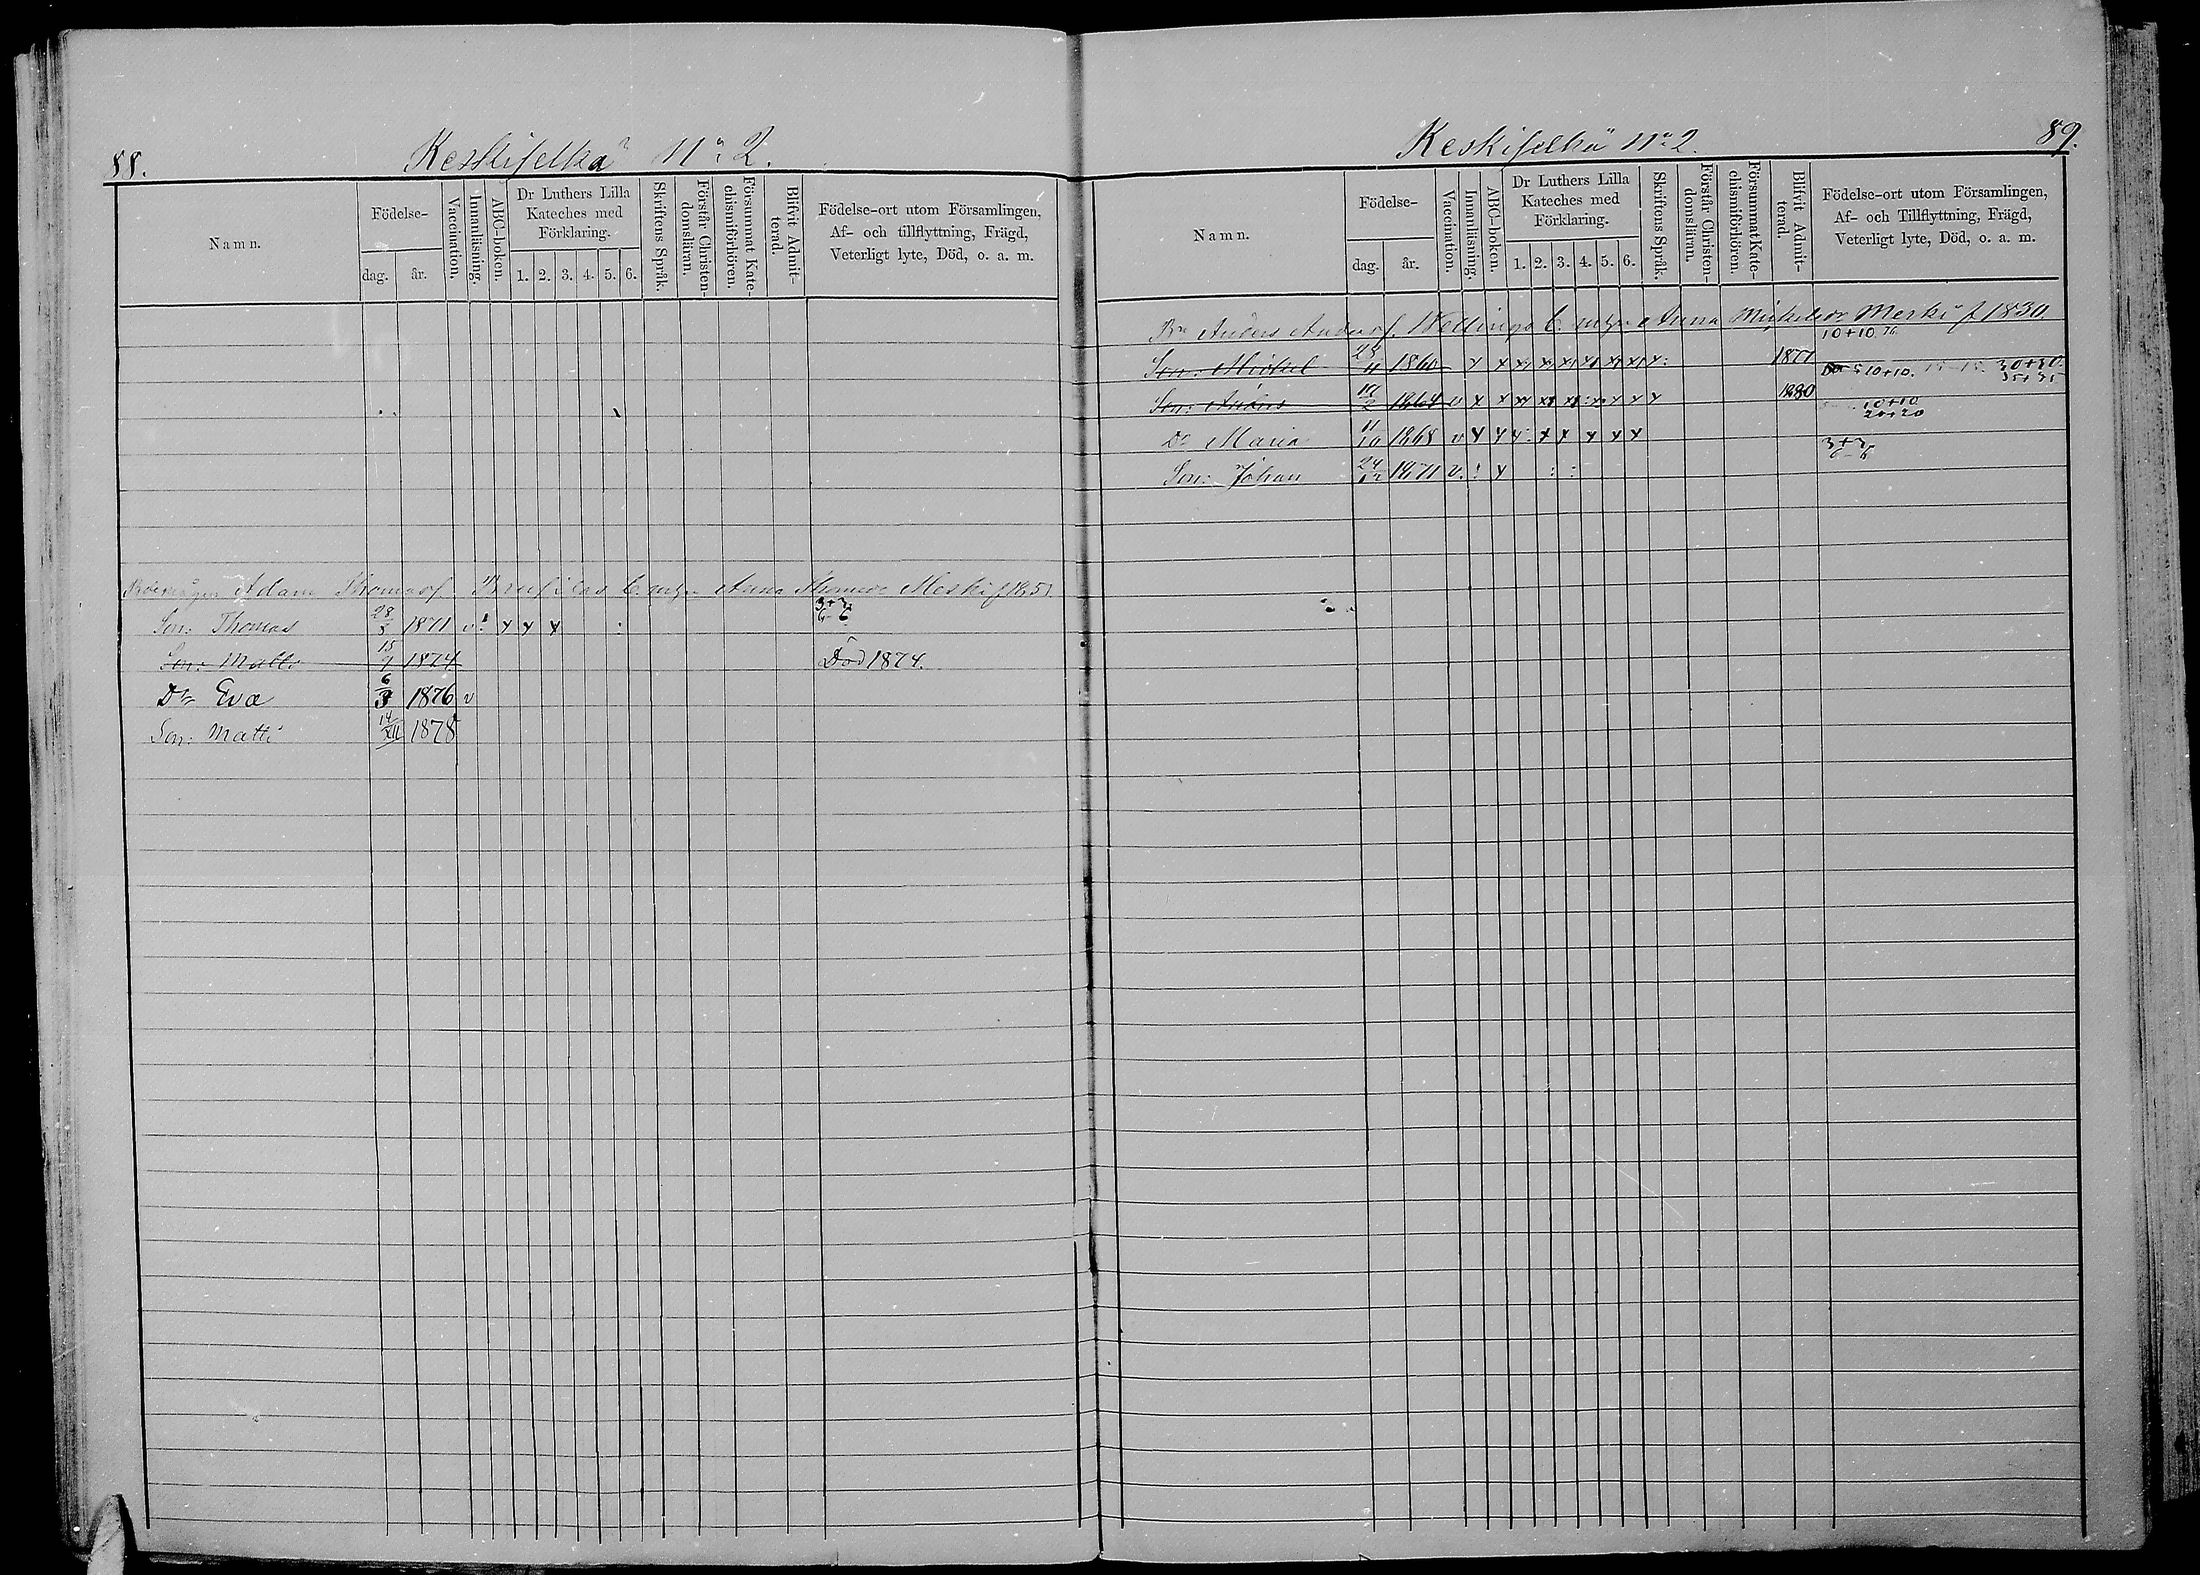 88.
Keskiselkä N:o 2.
Namn.
Födelse-
dag.
år.
Vaccination.
Innanläsning.
ABC-boken.
Dr Luthers Lilla
Kateches med
Förklaring.
1. 2. 3. 4. 5. 6.
Skriftens Språk.
Förstår Christen-
domsläran.
Försummat Kate-
chismiförhören.
Blifvit Admit-
terad.
Födelse-ort utom Församlingen,
Af- och tillflyttning, Frägd,
Veterligt lyte, Död, o. a. m.
Adam Thomasf. C. Anna Thomasdr Meski f 1851
3+3
6-6
Son: Thomas 28/3 1871 v : x x x :
Son: Matts 15/7 1874 Död 1874.
Dr Eva 6/3 1876 v
Son: Matti 14/XII 1878
89.
Keskiselkä N:o 2.
Namn.
Födelse-
dag.
år.
Vaccination.
Innanläsning.
ABC-boken.
Dr Luthers Lilla
Kateches med
Förklaring.
1. 2. 3. 4. 5. 6.
Skriftens Språk.
Förstår Christen-
domsläran.
Försummat Kate-
chismiförhören.
Blifvit Admit-
terad.
Födelse-ort utom Församlingen,
Af- och Tillflyttning, Frägd,
Veterligt lyte, Död, o. a. m.
Bn Anders Andersf. Wellings C. Anna Mickelsdr Merki f 1830
10+10
Son: Mickel 1860 x x x x x x x x x: 1877 10+10. 15-15. 30+30.
35+35
Son: Anders 1864 v x x x x x x x x x 1880 10+10
20+20
Dr Maria 11/10 1868 v x x x x x x x x 3+3
Son: Johan 24/12 1871 v. : x : :